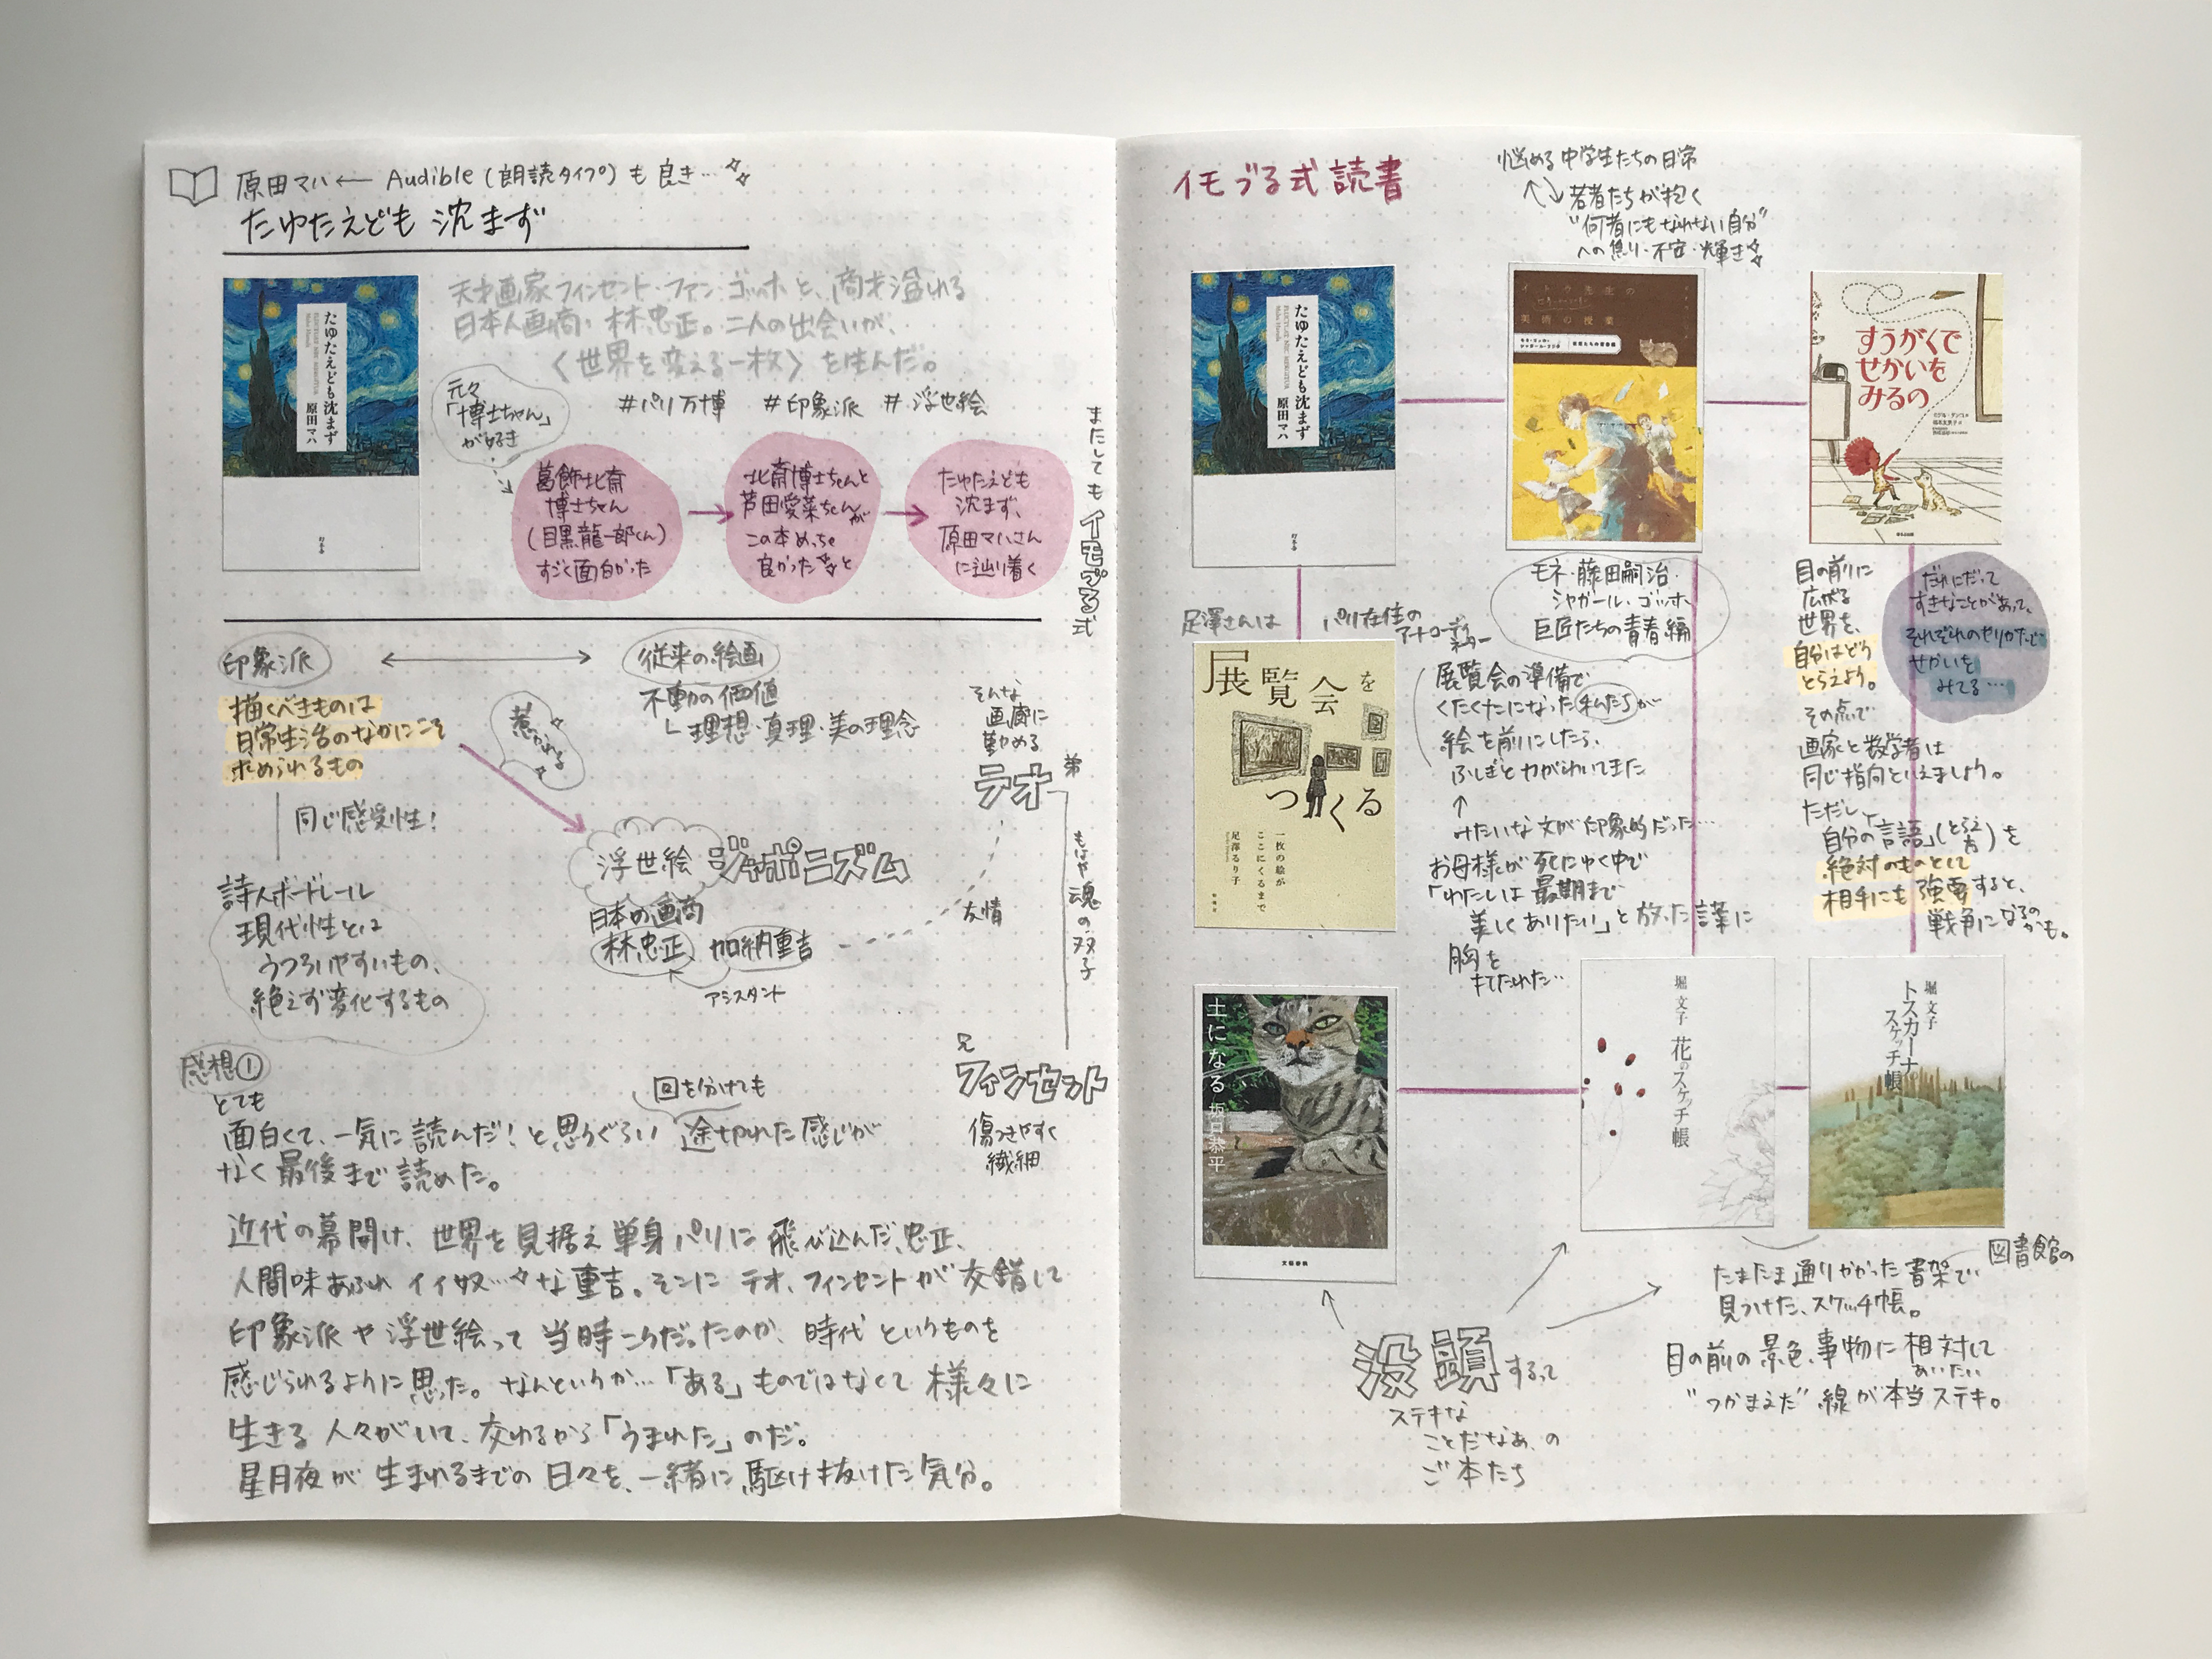 原田マハ ← Audible (朗読タイプ) も良き…
たゆたえども 沈まず
たゆたえども沈まず
原田マハ
天才画家フィンセント・ファン・ゴッホと、商才溢れる
日本人画商・林忠正。二人の出会いが、
〈世界を変える一枚〉を生んだ。
#パリ万博 #印象派 #浮世絵
元々
「博士ちゃん」
が好き
葛飾北斎
博士ちゃん
(目黒龍一郎くん)
すごく面白かった
北斎博士ちゃんと
芦田愛菜ちゃんが
この本めっちゃ
良かった と
たゆたえども
沈まず、
原田マハさん
に辿り着く
またしても イモづる式
印象派
従来の絵画
描くべきものは
日常生活のなかにこそ
求められるもの
惹かれる
不動の価値
理想・真理・美の理念
同じ感受性!
そんな
画商に
勤める
テオ
弟
もはや魂の双子
浮世絵 ジャポニズム
日本の画商
林忠正 加納重吉
アシスタント
友情
詩人ボードレール
現代性とは
うつろいやすいもの、
絶えず変化するもの
兄
フィンセント
傷つきやすく
繊細
感想①
とても
面白くて、一気に読んだ! と思うぐらい 途切れた感じが
回を分けても
なく最後まで読めた。
近代の幕開け、世界を見据え単身パリに飛び込んだ忠正、
人間味あふれ イイ奴…な重吉。そこに テオ、フィンセントが交錯して
印象派や浮世絵って当時こうだったのか、時代というものを
感じられるように思った。なんというか…「ある」ものではなくて様々に
生きる人々がいて、交わるから「うまれた」のだ。
星月夜が生まれるまでの日々を、一緒に駆け抜けた気分。
イモづる式読書
悩める中学生たちの日常
若者たちが抱く
"何者にもなれない自分"
への焦り・不安・輝き
たゆたえども沈まず
原田マハ
幻冬舎
イトウ先生の
美術の授業
すうがくで
せかいを
みるの
モネ・藤田嗣治・
シャガール・ゴッホ
巨匠たちの青春編
目の前に
広がる
世界を、
自分はどう
とらえよう。
その点で
画家と数学者は
同じ指向といえましょう。
ただし、
「自分の言語」(とらえ方)を
絶対のものとして
相手にも強要すると、
戦争になるのかも。
だれにだって
すきなことがあって、
それぞれのやりかたで
せかいを
みてる…
足澤さんは
パリ在住の
コーディネーター
展覧会を
つくる
一枚の絵が
ここにくるまで
足澤るり子
展覧会の準備で
くたくたになった私たちが
絵を前にしたら、
ふしぎと力がわいてきた
みたいな文が印象的だった…
お母様が死にゆく中で
「わたしは最期まで
美しくありたい」と放った言葉に
胸を
打たれた…
土になる 坂口恭平
文藝春秋
堀 文子 花のスケッチ帳
堀 文子
トスカーナの
スケッチ帳
没頭するって
ステキな
ことだなあ、の
ご本たち
図書館の
たまたま通りかかった書架で
見つけた、スケッチ帳。
目の前の景色、事物に相対して
あいたい
"つかまえた" 線が本当ステキ。